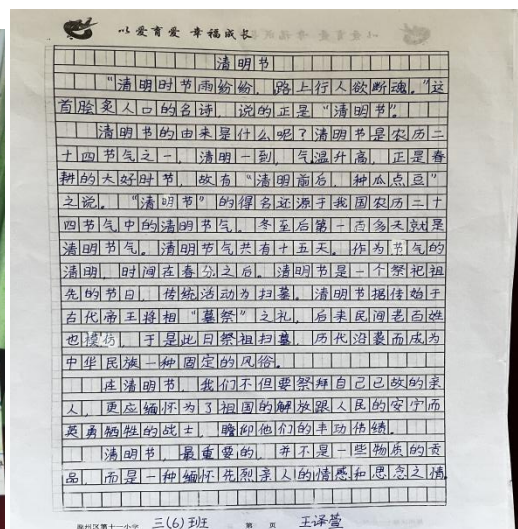 以爱育爱 幸福成长
清明节
“清明时节雨纷纷，路上行人欲断魂。”这
首脍炙人口的名诗，说的正是“清明节”。
清明节的由来是什么呢？清明节是农历二
十四节气之一，清明一到，气温升高，正是春
耕的大好时节，故有“清明前后，种瓜点豆”
之说。“清明节”的得名还源于我国农历二十
四节气中的清明节气。冬至后第一百多天就是
清明节气。清明节气共有十五天。作为节气的
清明，时间在春分之后。清明节是一个祭祀祖
先的节日，传统活动为扫墓。清明节据传始于
古代帝王将相“墓祭”之礼，后来民间老百姓
也模仿，于是此日祭祖扫墓，历代沿袭而成为
中华民族一种固定的风俗。
在清明节，我们不但要祭拜自己已故的亲
人，更应缅怀为了祖国的解放跟人民的安宁而
英勇牺牲的战士，瞻仰他们的丰功伟绩。
清明节，最重要的，并不是一些物质的贡
品，而是一种缅怀先烈亲人的情感和思念之情。
州区第十一小学 三(6)班 第 页 王泽萱